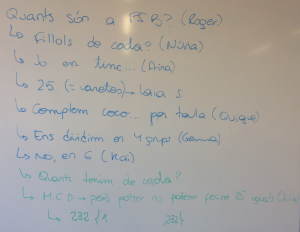 Quants són a PSB? (Roger)
↳ Fillols de cada? (Núria)
↳ Jo en tinc... (Aina)
↳ 25 (= canetes) → Laia S
↳ Complem coco... per taula (Quique)
↳ Ens dividim en 4 grups (Gemma)
↳ No, en 6 (Kai)
↳ Quants tenim de cada?
↳ M.C.D → però potser no podem fer-ne 25 iguals (Júlia)
↳ 232 { 1 232 }